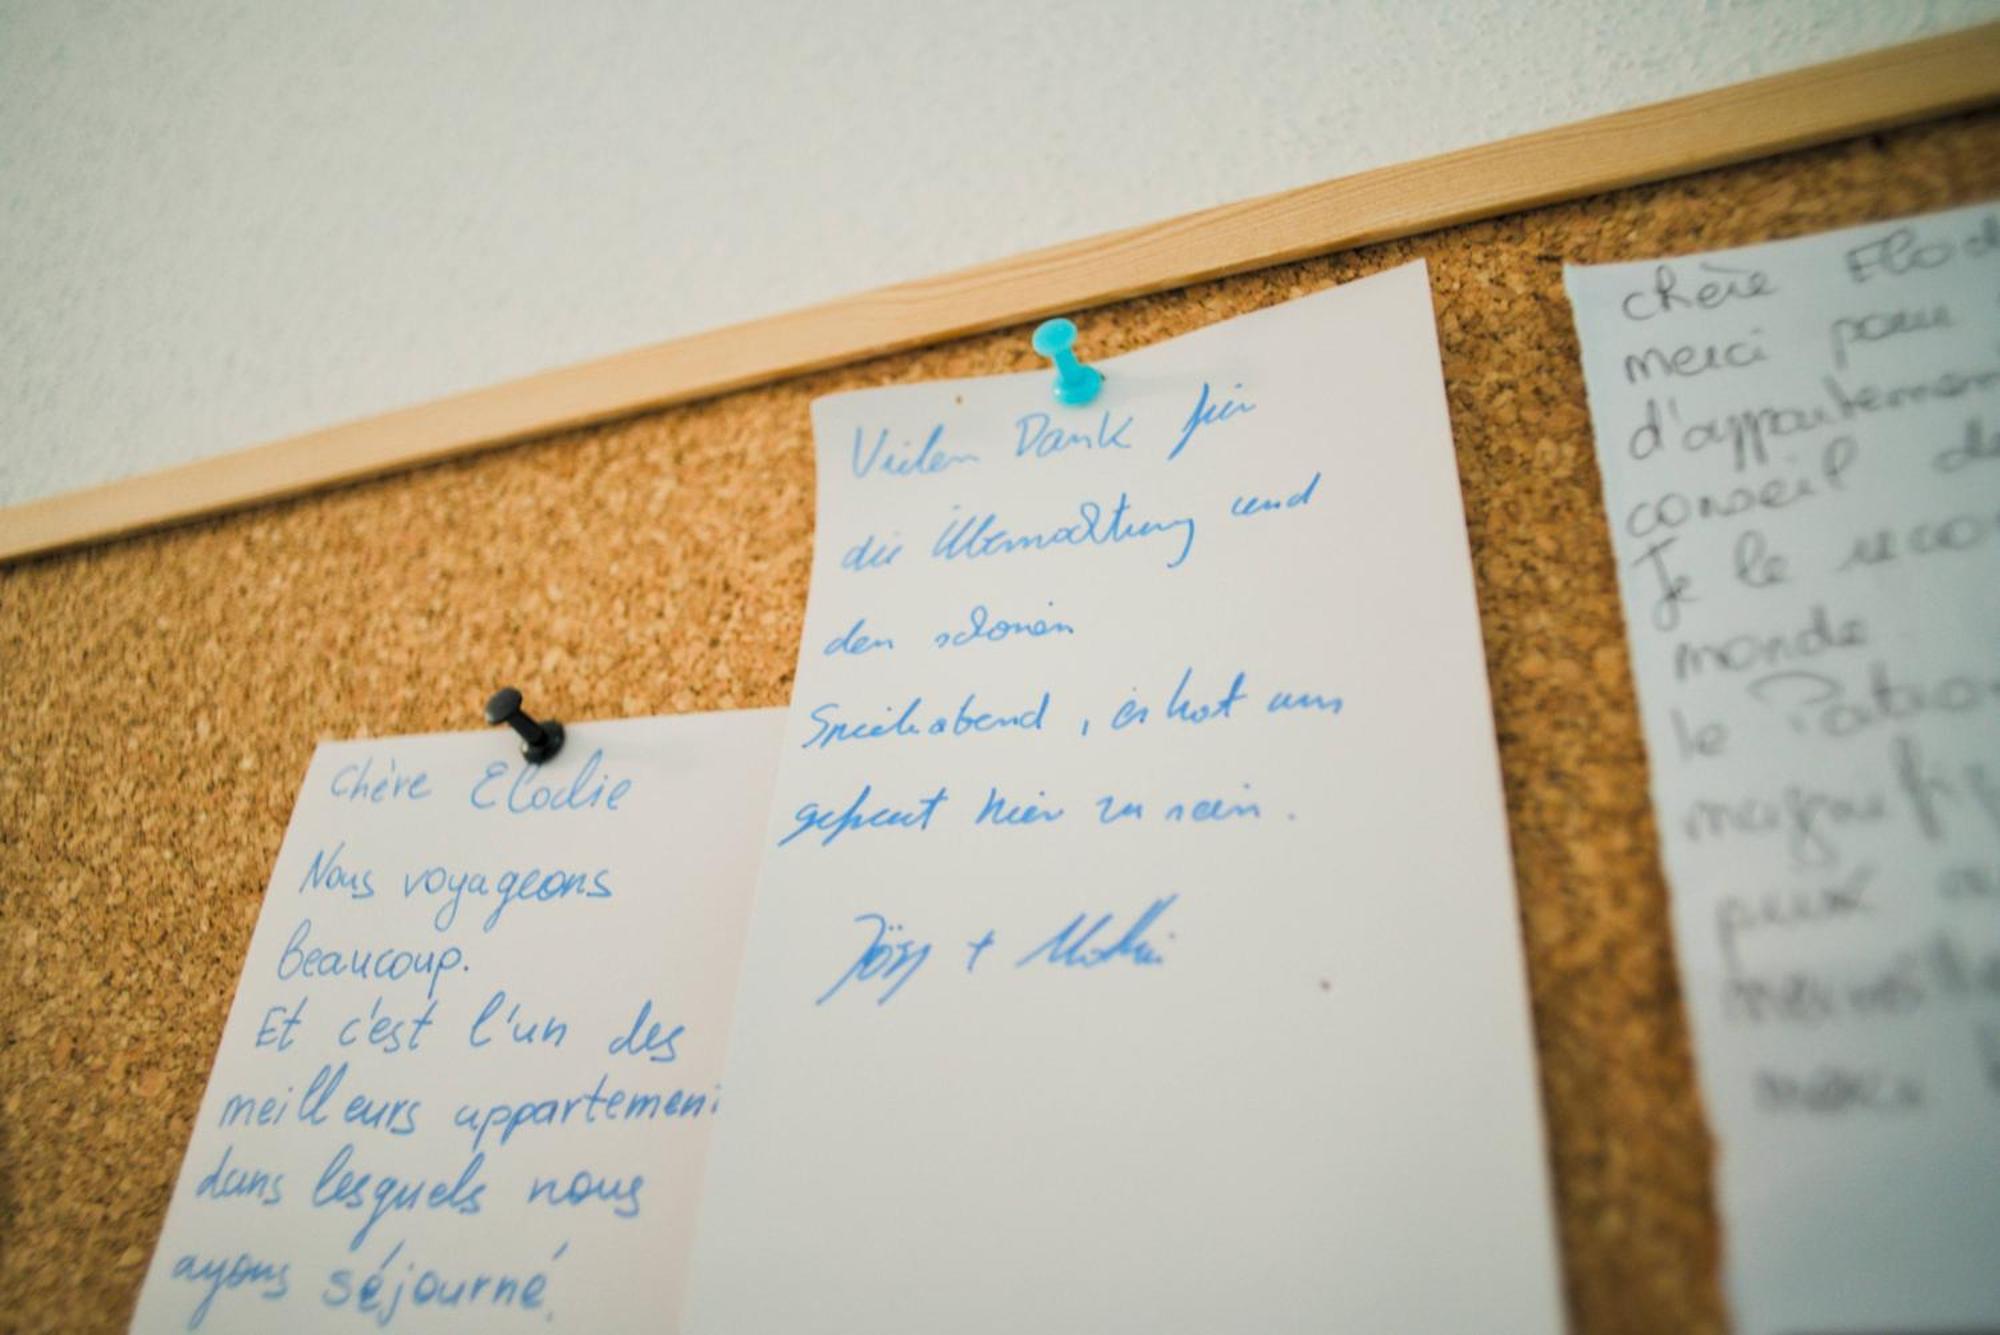 Chère Elodie
Nous voyageons
beaucoup.
Et c'est l'un des
meilleurs appartemen
dans lesquels nous
ayons séjourné.
Vielen Dank für
die Übernachtung und
den schönen
Spieleabend, es hat uns
gefreut hier zu sein.
Jörg +
chère Elod
merci pour
d'appartemen
conseil de
Je le reco
monde
le Patro
magnifi
merci